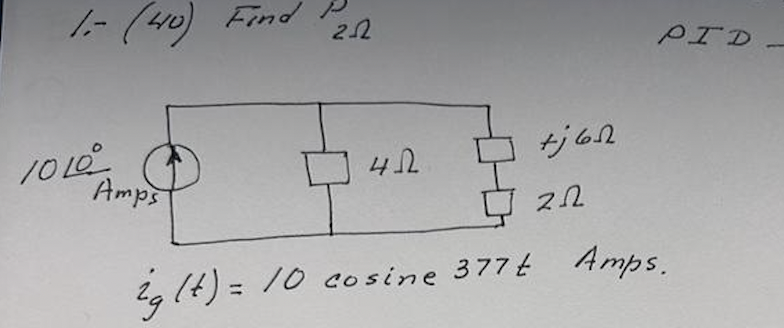 1.- (40) Find P2Ω
PID -
10∠0° Amps
4Ω
+j6Ω
2Ω
ig(t) = 10 cosine 377t Amps.